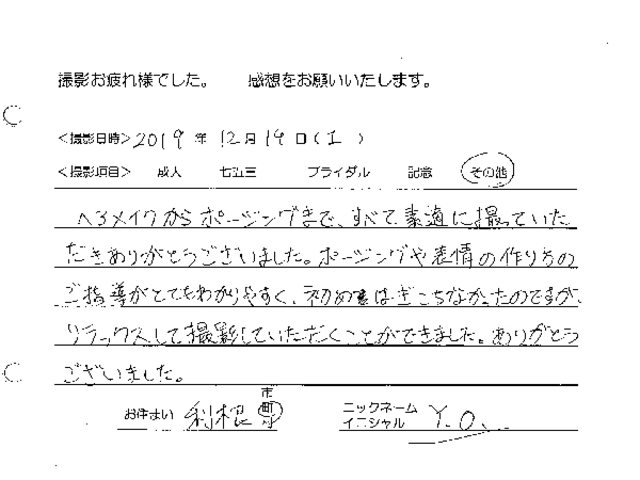 撮影お疲れ様でした。 感想をお願いいたします。
<撮影日時>2019年 12月 14日(土)
<撮影項目> 成人 七五三 ブライダル 記念 その他
ヘアメイクからポージングまで、すべて素適に撮っていた
だきありがとうございました。ポージングや表情の作り方の
ご指導がとてもわかりやすく、初めはぎこちなかったのですが、
リラックスして撮影していただくことができました。ありがとう
ございました。
お住まい 利根 市町村
ニックネーム
イニシャル Y.O.